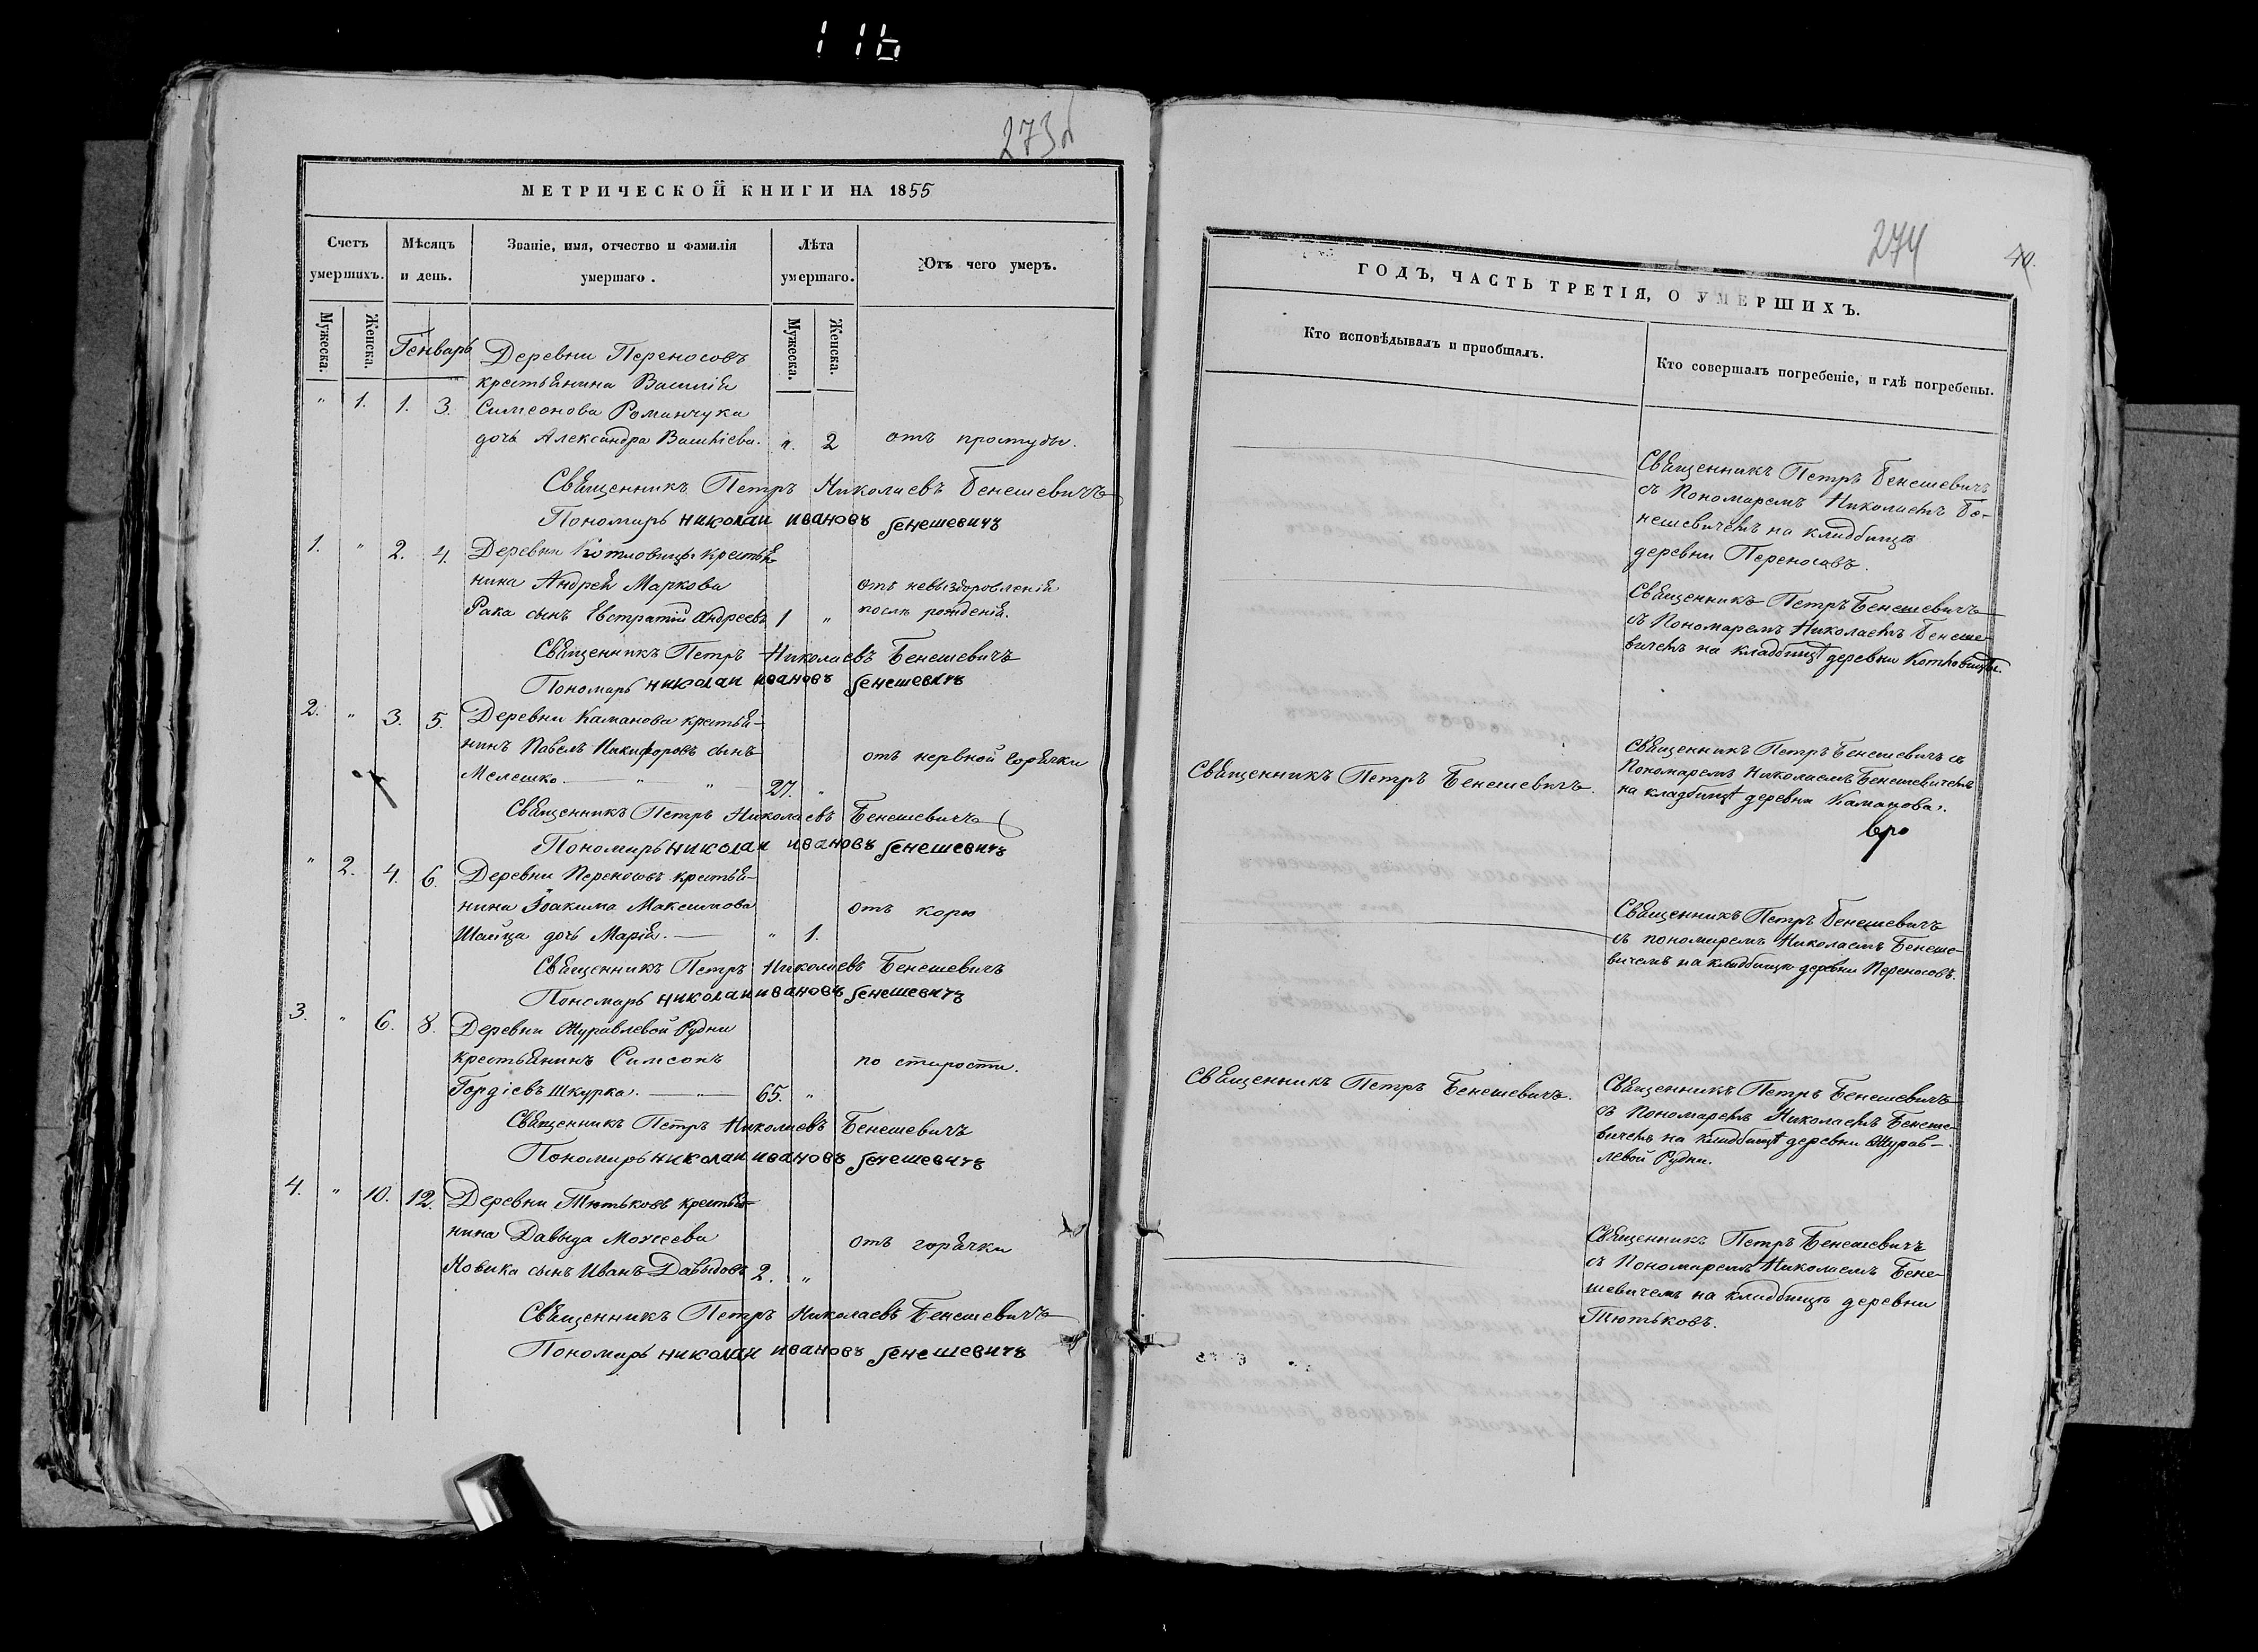 116
273б
МЕТРИЧЕСКОЙ КНИГИ НА 1855
Счетъ умершихъ.
Мѣсяцъ и день.
Званіе, имя, отчество и фамилія умершаго.
Лѣта умершаго.
Отъ чего умеръ.
Мужеска.
Женска.
Генварь
Мужеска.
Женска.
Деревни Переносовъ
крестьянина Василія
" 1. 1. 3. Симеонова Романчука
дочь Александра Васильева. ". 2 отъ простуды.
Священникъ Петръ Николаевъ Бенешевичъ
Пономарь николаи ивановъ бенешевичъ
1. " 2. 4. Деревни Котловицы крестья-
нина Андрея Маркова отъ невыздоровленія
Рака сынъ Евстратій Андреевъ 1 " послѣ рожденія.
Священникъ Петръ Николаевъ Бенешевичъ
Пономарь николаи ивановъ бенешевичъ
2. " 3. 5. Деревни Каманова крестья-
нинъ Павелъ Никифоровъ сынъ отъ нервной горячки
Мелешко. " " 27. "
Священникъ Петръ Николаевъ Бенешевичъ
Пономарь николаи ивановъ бенешевичъ
" 2. 4. 6. Деревни Переносовъ крестья-
нина Іоакима Максимова отъ корю
Шаица дочь Марія. " 1.
Священникъ Петръ Николаевъ Бенешевичъ
Пономарь николаи ивановъ бенешевичъ
3. " 6. 8. Деревни Журавлевой Рудни
крестьянинъ Симеонъ по старости.
Гордіевъ Шкурка. " 65. "
Священникъ Петръ Николаевъ Бенешевичъ
Пономарь николаи ивановъ бенешевичъ
4. " 10. 12. Деревни Тютьковъ крестья-
нина Давыда Моисеева отъ горячки
Новика сынъ Иванъ Давыдовъ 2. "
Священникъ Петръ Николаевъ Бенешевичъ
Пономарь николаи ивановъ бенешевичъ
274
40.
ГОДЪ, ЧАСТЬ ТРЕТІЯ, О УМЕРШИХЪ.
Кто исповѣдывалъ и пріобщалъ.
Кто совершалъ погребеніе, и гдѣ погребены.
Священникъ Петръ Бенешевичъ
съ Пономаремъ Николаемъ Бе-
нешевичемъ на кладбищѣ
деревни Переносовъ.
Священникъ Петръ Бенешевичъ
съ Пономаремъ Николаемъ Бенеше-
вичемъ на кладбищѣ деревни Котловицы.
Священникъ Петръ Бенешевичъ.
Священникъ Петръ Бенешевичъ съ
Пономаремъ Николаемъ Бенешевичемъ
на кладбищѣ деревни Каманова.
Священникъ Петръ Бенешевичъ
съ пономаремъ Николаемъ Бенеше-
вичемъ на кладбищѣ деревни Переносовъ.
Священникъ Петръ Бенешевичъ.
Священникъ Петръ Бенешевичъ
съ Пономаремъ Николаемъ Бенеше-
вичемъ на кладбищѣ деревни Журав-
левой Рудни.
Священникъ Петръ Бенешевичъ
съ Пономаремъ Николаемъ Бене-
шевичемъ на кладбищѣ деревни
Тютьковъ.